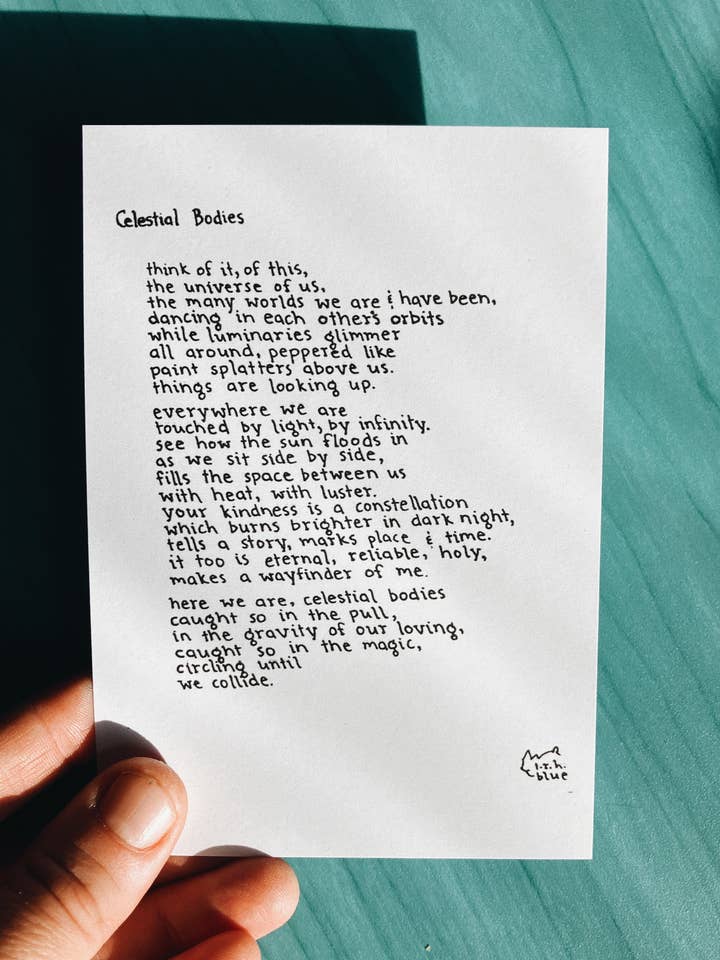 Celestial Bodies
think of it, of this,
the universe of us,
the many worlds we are & have been,
dancing in each other's orbits
while luminaries glimmer
all around, peppered like
paint splatters above us.
things are looking up.
everywhere we are
touched by light, by infinity.
see how the sun floods in
as we sit side by side,
fills the space between us
with heat, with luster.
your kindness is a constellation
which burns brighter in dark night,
tells a story, marks place & time.
it too is eternal, reliable, holy,
makes a wayfinder of me.
here we are, celestial bodies
caught so in the pull,
in the gravity of our loving,
caught so in the magic,
circling until
we collide.
l.r.h.
blue